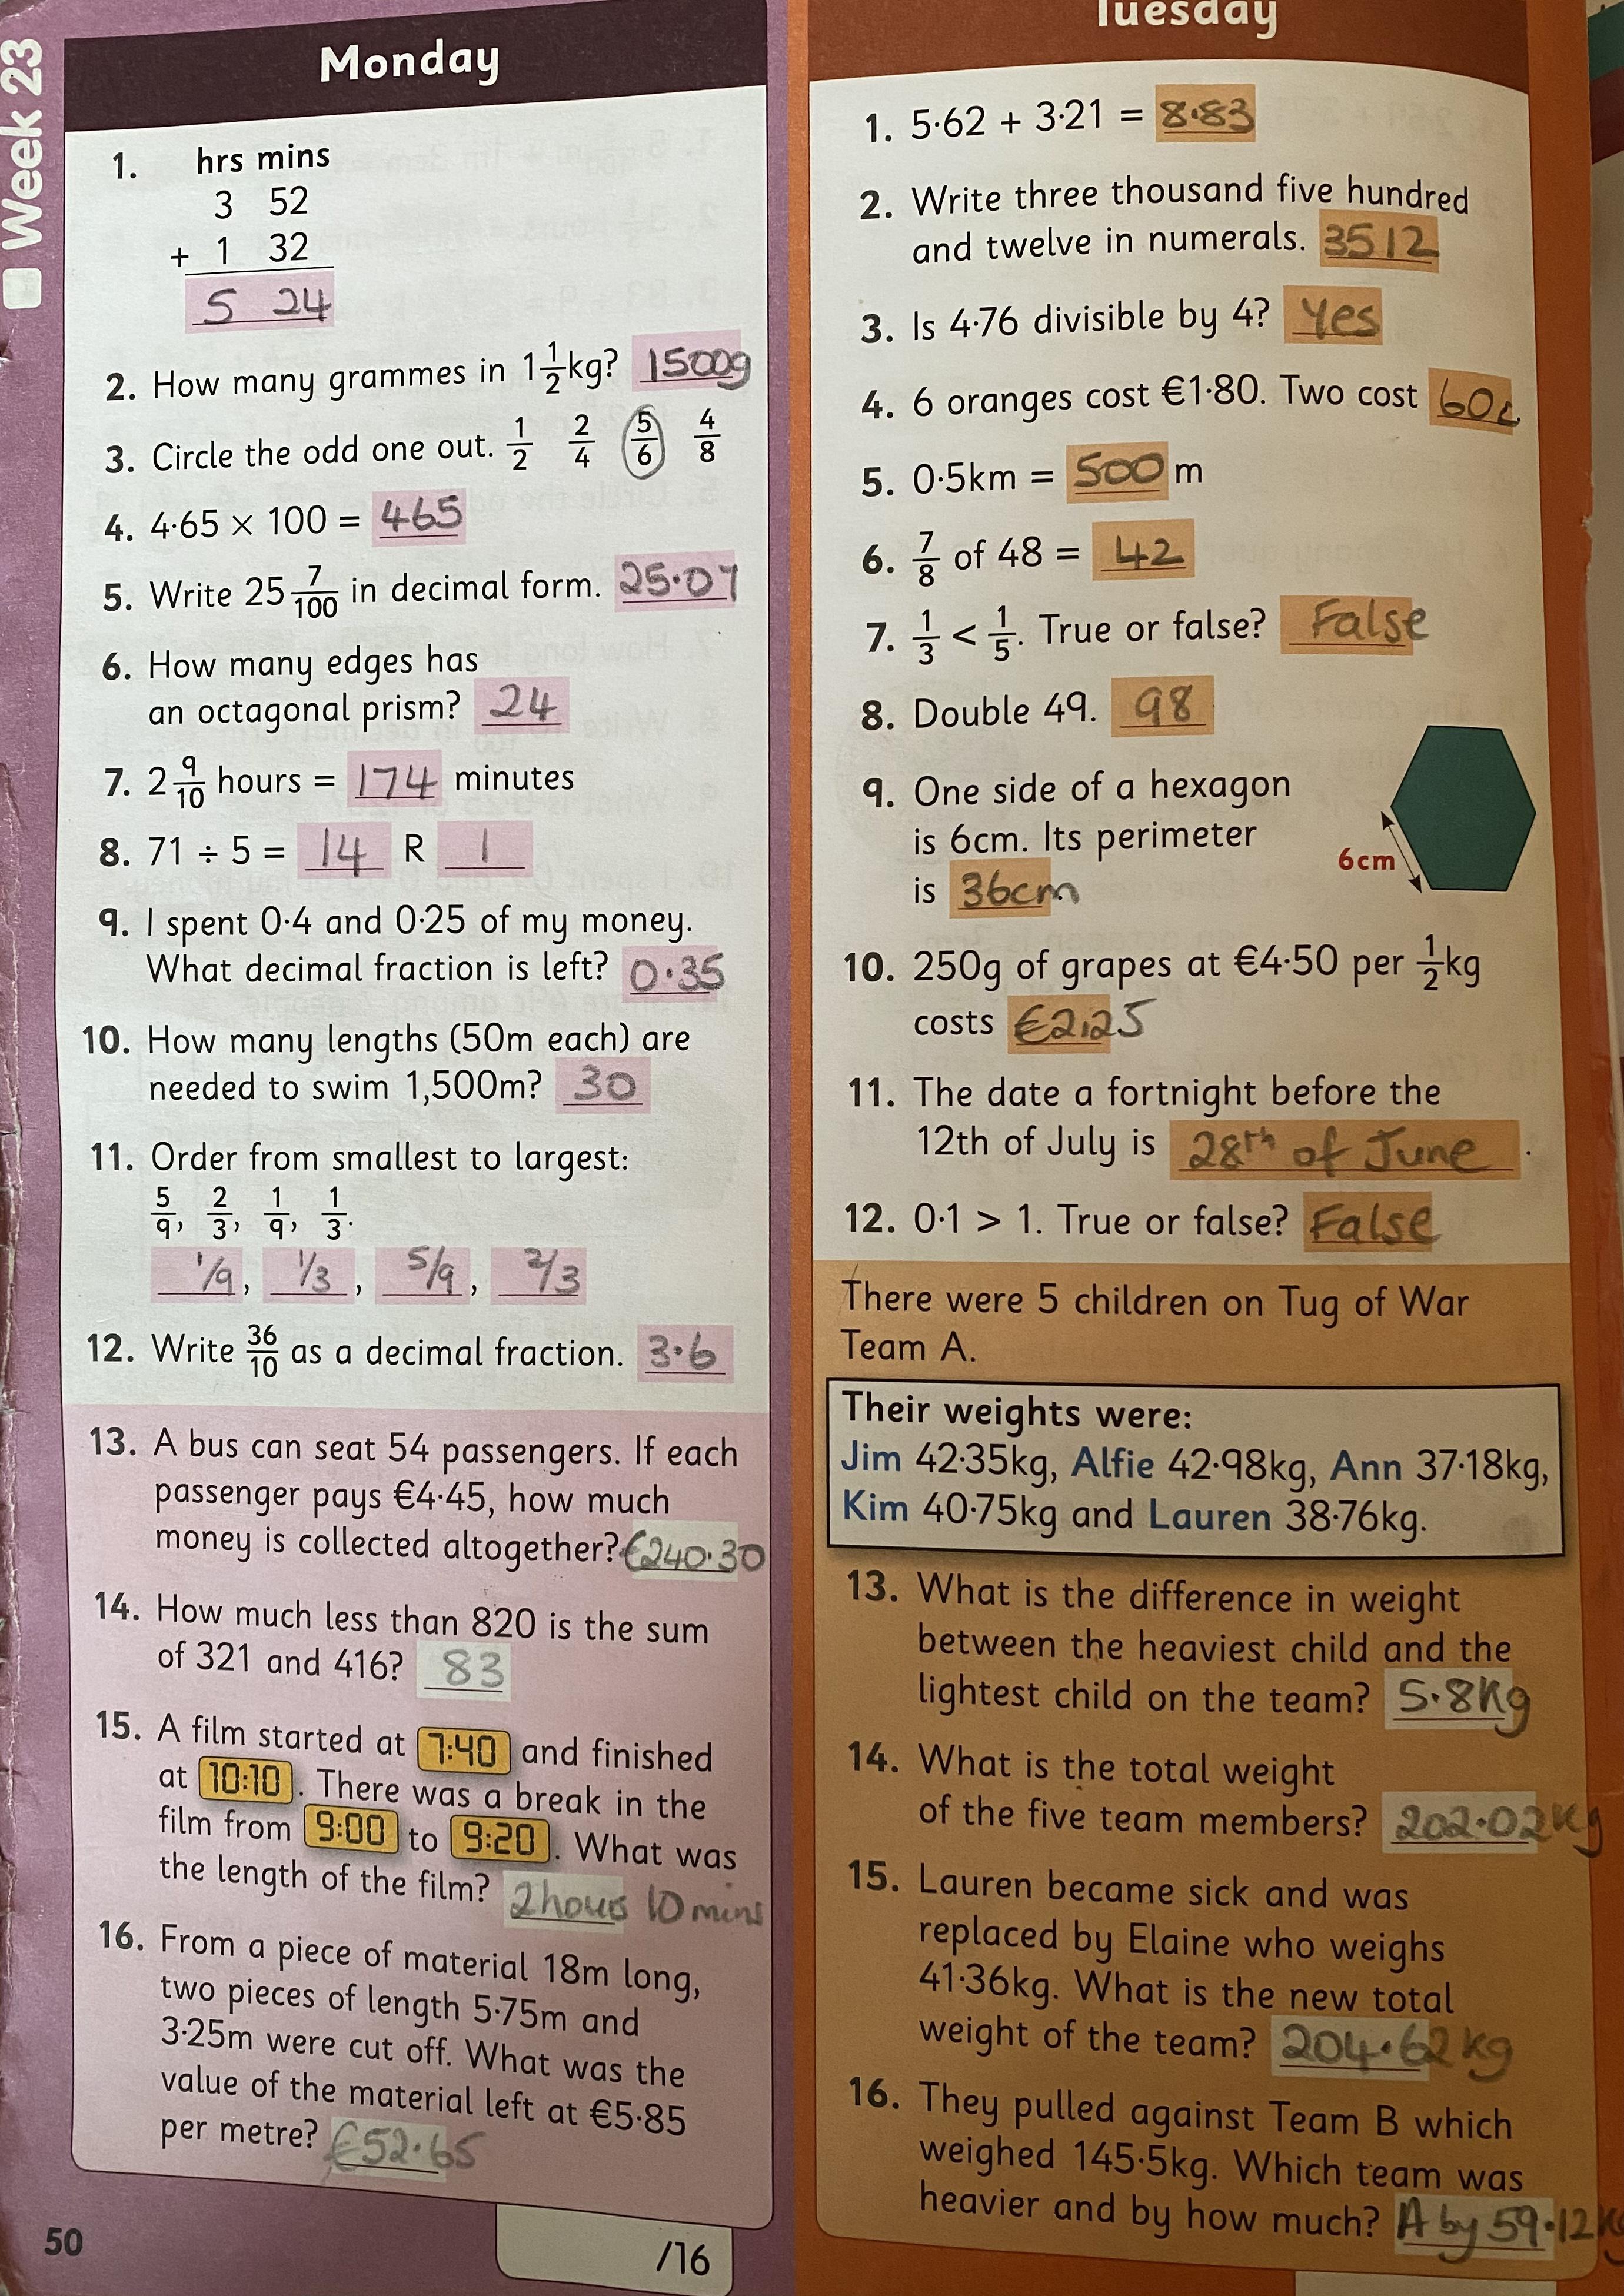 Week 23
Monday
1. hrs mins
3 52
+ 1 32
5 24
2. How many grammes in 1 1/2 kg? 1500g
3. Circle the odd one out. 1/2 2/4 5/6 4/8
4. 4·65 × 100 = 465
5. Write 25 7/100 in decimal form. 25·07
6. How many edges has
an octagonal prism? 24
7. 2 9/10 hours = 174 minutes
8. 71 ÷ 5 = 14 R 1
9. I spent 0·4 and 0·25 of my money.
What decimal fraction is left? 0·35
10. How many lengths (50m each) are
needed to swim 1,500m? 30
11. Order from smallest to largest:
5/9, 2/3, 1/9, 1/3.
1/9, 1/3, 5/9, 2/3
12. Write 36/10 as a decimal fraction. 3·6
13. A bus can seat 54 passengers. If each
passenger pays €4·45, how much
money is collected altogether? €240·30
14. How much less than 820 is the sum
of 321 and 416? 83
15. A film started at 7:40 and finished
at 10:10. There was a break in the
film from 9:00 to 9:20. What was
the length of the film? 2 hours 10 mins
16. From a piece of material 18m long,
two pieces of length 5·75m and
3·25m were cut off. What was the
value of the material left at €5·85
per metre? €52·65
50
/16
Tuesday
1. 5·62 + 3·21 = 8·83
2. Write three thousand five hundred
and twelve in numerals. 3512
3. Is 4·76 divisible by 4? Yes
4. 6 oranges cost €1·80. Two cost 60c
5. 0·5km = 500 m
6. 7/8 of 48 = 42
7. 1/3 < 1/5. True or false? False
8. Double 49. 98
9. One side of a hexagon
is 6cm. Its perimeter
is 36cm.
6cm
10. 250g of grapes at €4·50 per 1/2 kg
costs €2,25
11. The date a fortnight before the
12th of July is 28th of June.
12. 0·1 > 1. True or false? False
There were 5 children on Tug of War
Team A.
Their weights were:
Jim 42·35kg, Alfie 42·98kg, Ann 37·18kg,
Kim 40·75kg and Lauren 38·76kg.
13. What is the difference in weight
between the heaviest child and the
lightest child on the team? 5·8Kg
14. What is the total weight
of the five team members? 202·02Kg
15. Lauren became sick and was
replaced by Elaine who weighs
41·36kg. What is the new total
weight of the team? 204·62Kg
16. They pulled against Team B which
weighed 145·5kg. Which team was
heavier and by how much? A by 59·12Kg